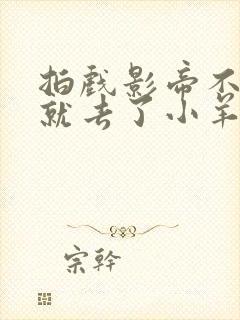 拍戏影帝不
就去了小羊
宗幹